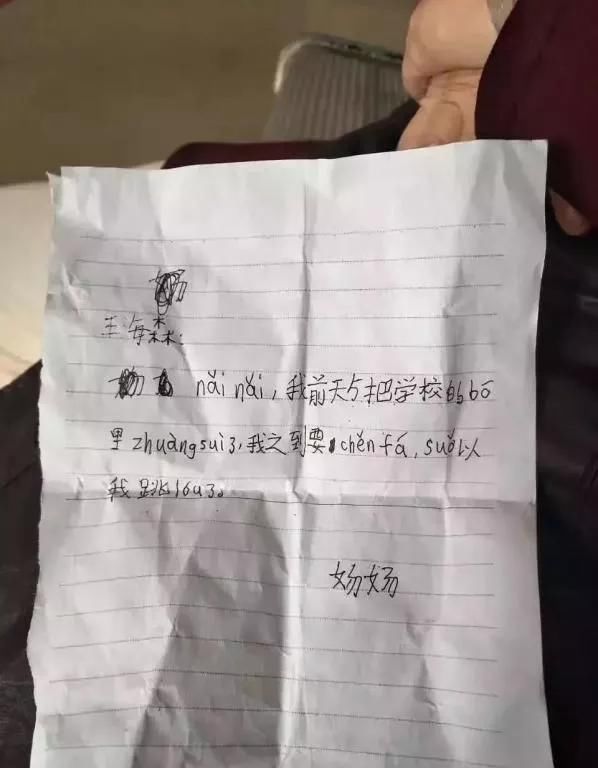 王海森:
nǎi nǎi，我前天把学校的bō
里zhuàngsuì了，我之到要chěnfá，suǒ以
我跳lóu了。